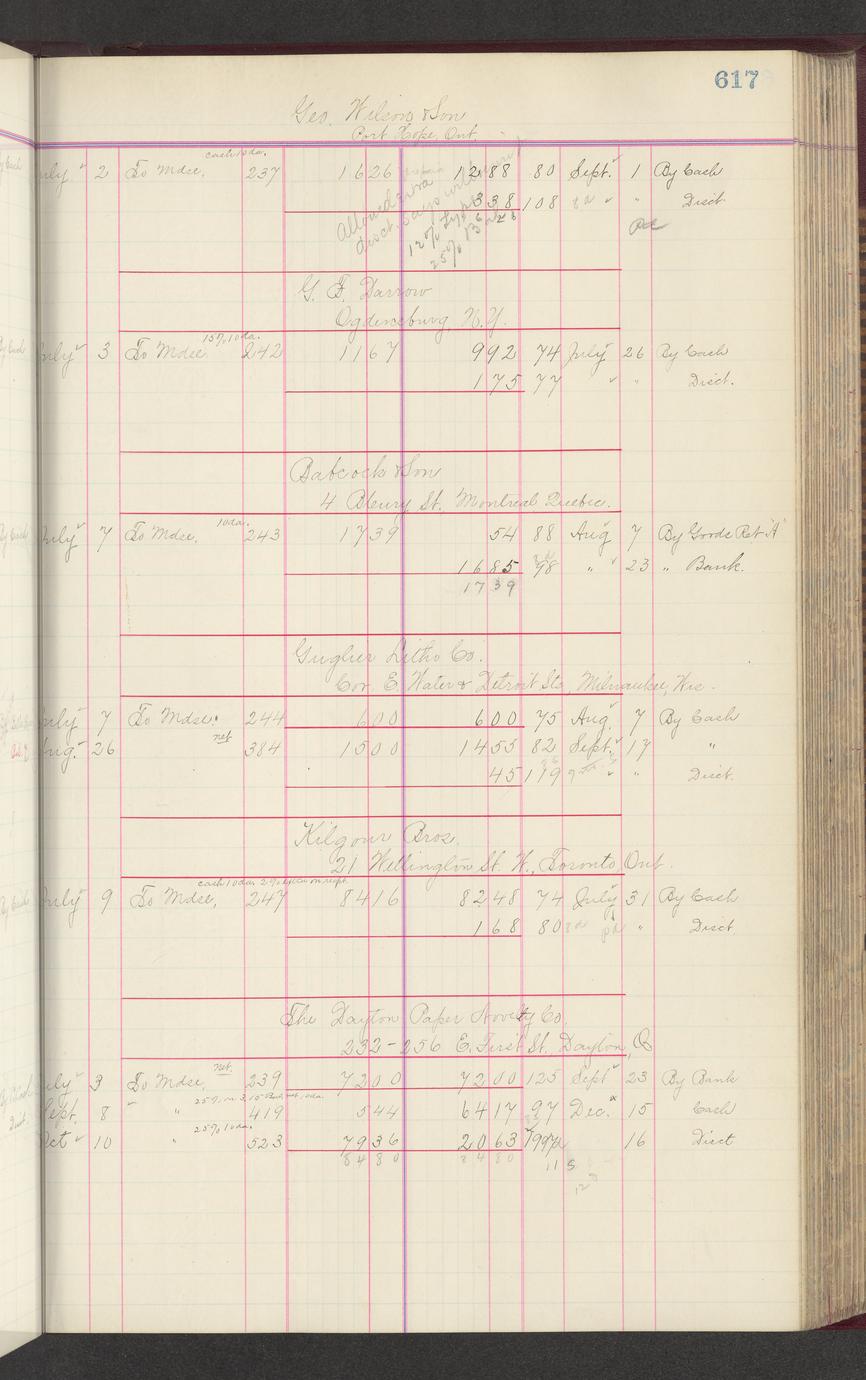 617
Geo. Wilson & Son
Port Hope, Ont.
cash 10 da.
July 2 To Mdse. 237 1626 1288 80 Sept. 1 By Cash
338 108 " " Disct
Allowed extra
disct. says will
12%
25%
Pd
G. F. Darrow
Ogdensburg, N.Y.
15% 10 da.
July 3 To Mdse. 242 1167 992 74 July 26 By Cash
175 77 " " Disct.
Babcock & Son
4 Bleury St. Montreal Quebec.
10 da.
July 7 To Mdse. 243 1739 54 88 Aug 7 By Goods Ret'd
1685 98 " " 23 " Bank.
1739
Gugler Litho Co.
Cor. E. Water & Detroit Sts, Milwaukee, Wis.
July 7 To Mdse. 244 600 600 75 Aug. 7 By Cash
net
Aug. 26 384 1500 1455 82 Sept. 17 "
45 119 " " Disct.
Kilgour Bros.
21 Wellington St. W., Toronto, Ont.
cash 10 da. 2% on rcpt.
July 9 To Mdse, 247 8416 8248 74 July 31 By Cash
168 80 pd " Disct
The Dayton Paper Novelty Co.
232-256 E. First St. Dayton, O
net.
July 3 To Mdse, 239 7200 7200 125 Sept 23 By Bank
Sept. 8 " 419 544 6417 97 Dec. 15 Cash
25% 10 da.
Oct 10 " 523 7936 2063 199 16 Disct
8480 8480
115